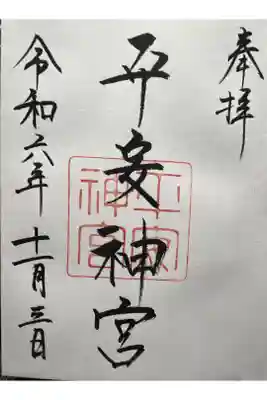 奉拝
平安神宮
平安神宮
令和六年 十一月三日